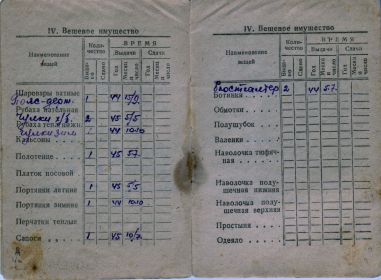 IV. Вещевое имущество
Наименование вещей
Количество
ВРЕМЯ
Выдачи
Сдачи
Год
Месяц и число
Год
Месяц и число
Шаровары ватные
Пояс 1 44
Рубаха нательная
Чулки х/б. 2 45 5/5
Рубаха тепл.
Чулки 1 44 10.10
Кальсоны
Полотенце 1 45 5.7.
Платок носовой
Портянки летние 1 45 5/5
Портянки зимние 1 44 10.10
Перчатки теплые
Сапоги 1 45 10/7
IV. Вещевое имущество
Наименование вещей
Количество
ВРЕМЯ
Выдачи
Сдачи
Год
Месяц и число
Год
Месяц и число
Бюстгальтер 2 44 5.7.
Ботинки
Обмотки
Полушубок
Валенки
Наволочка тюфячная
Наволочка подушечная нижняя
Наволочка подушечная верхняя
Простыня
Одеяло